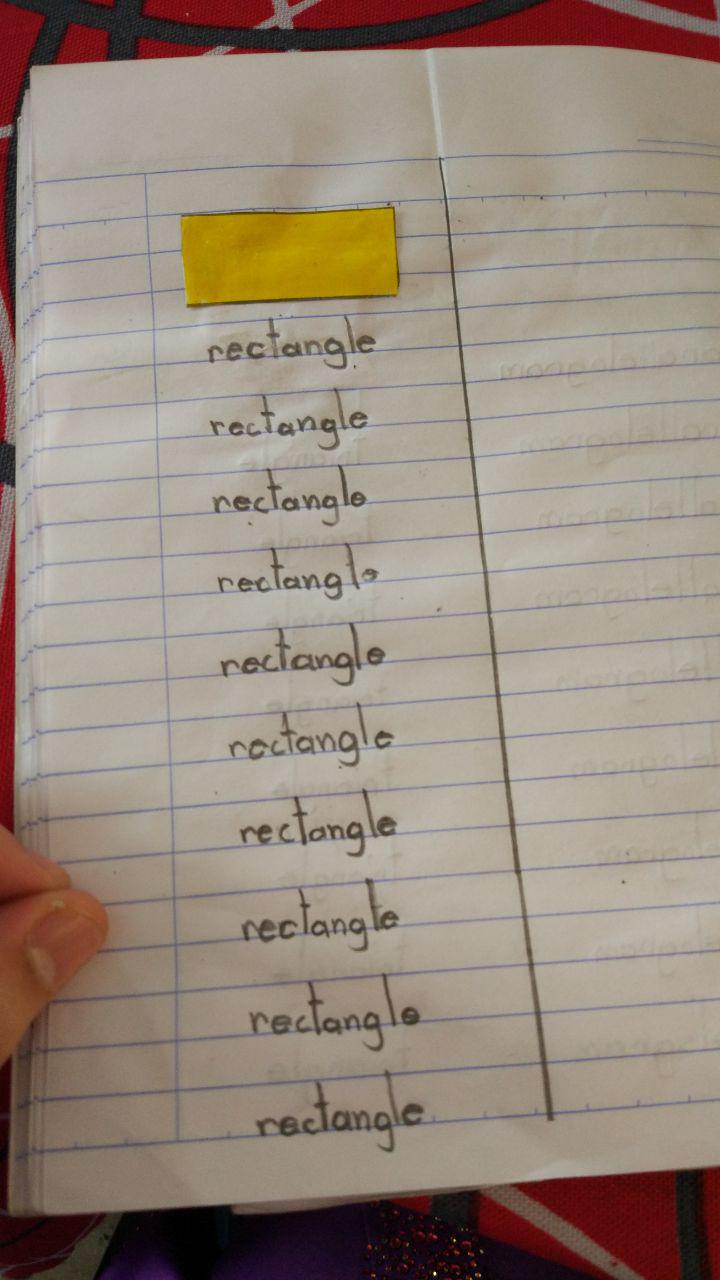 rectangle
rectangle
rectangle
rectangle
rectangle
rectangle
rectangle
rectangle
rectangle
rectangle